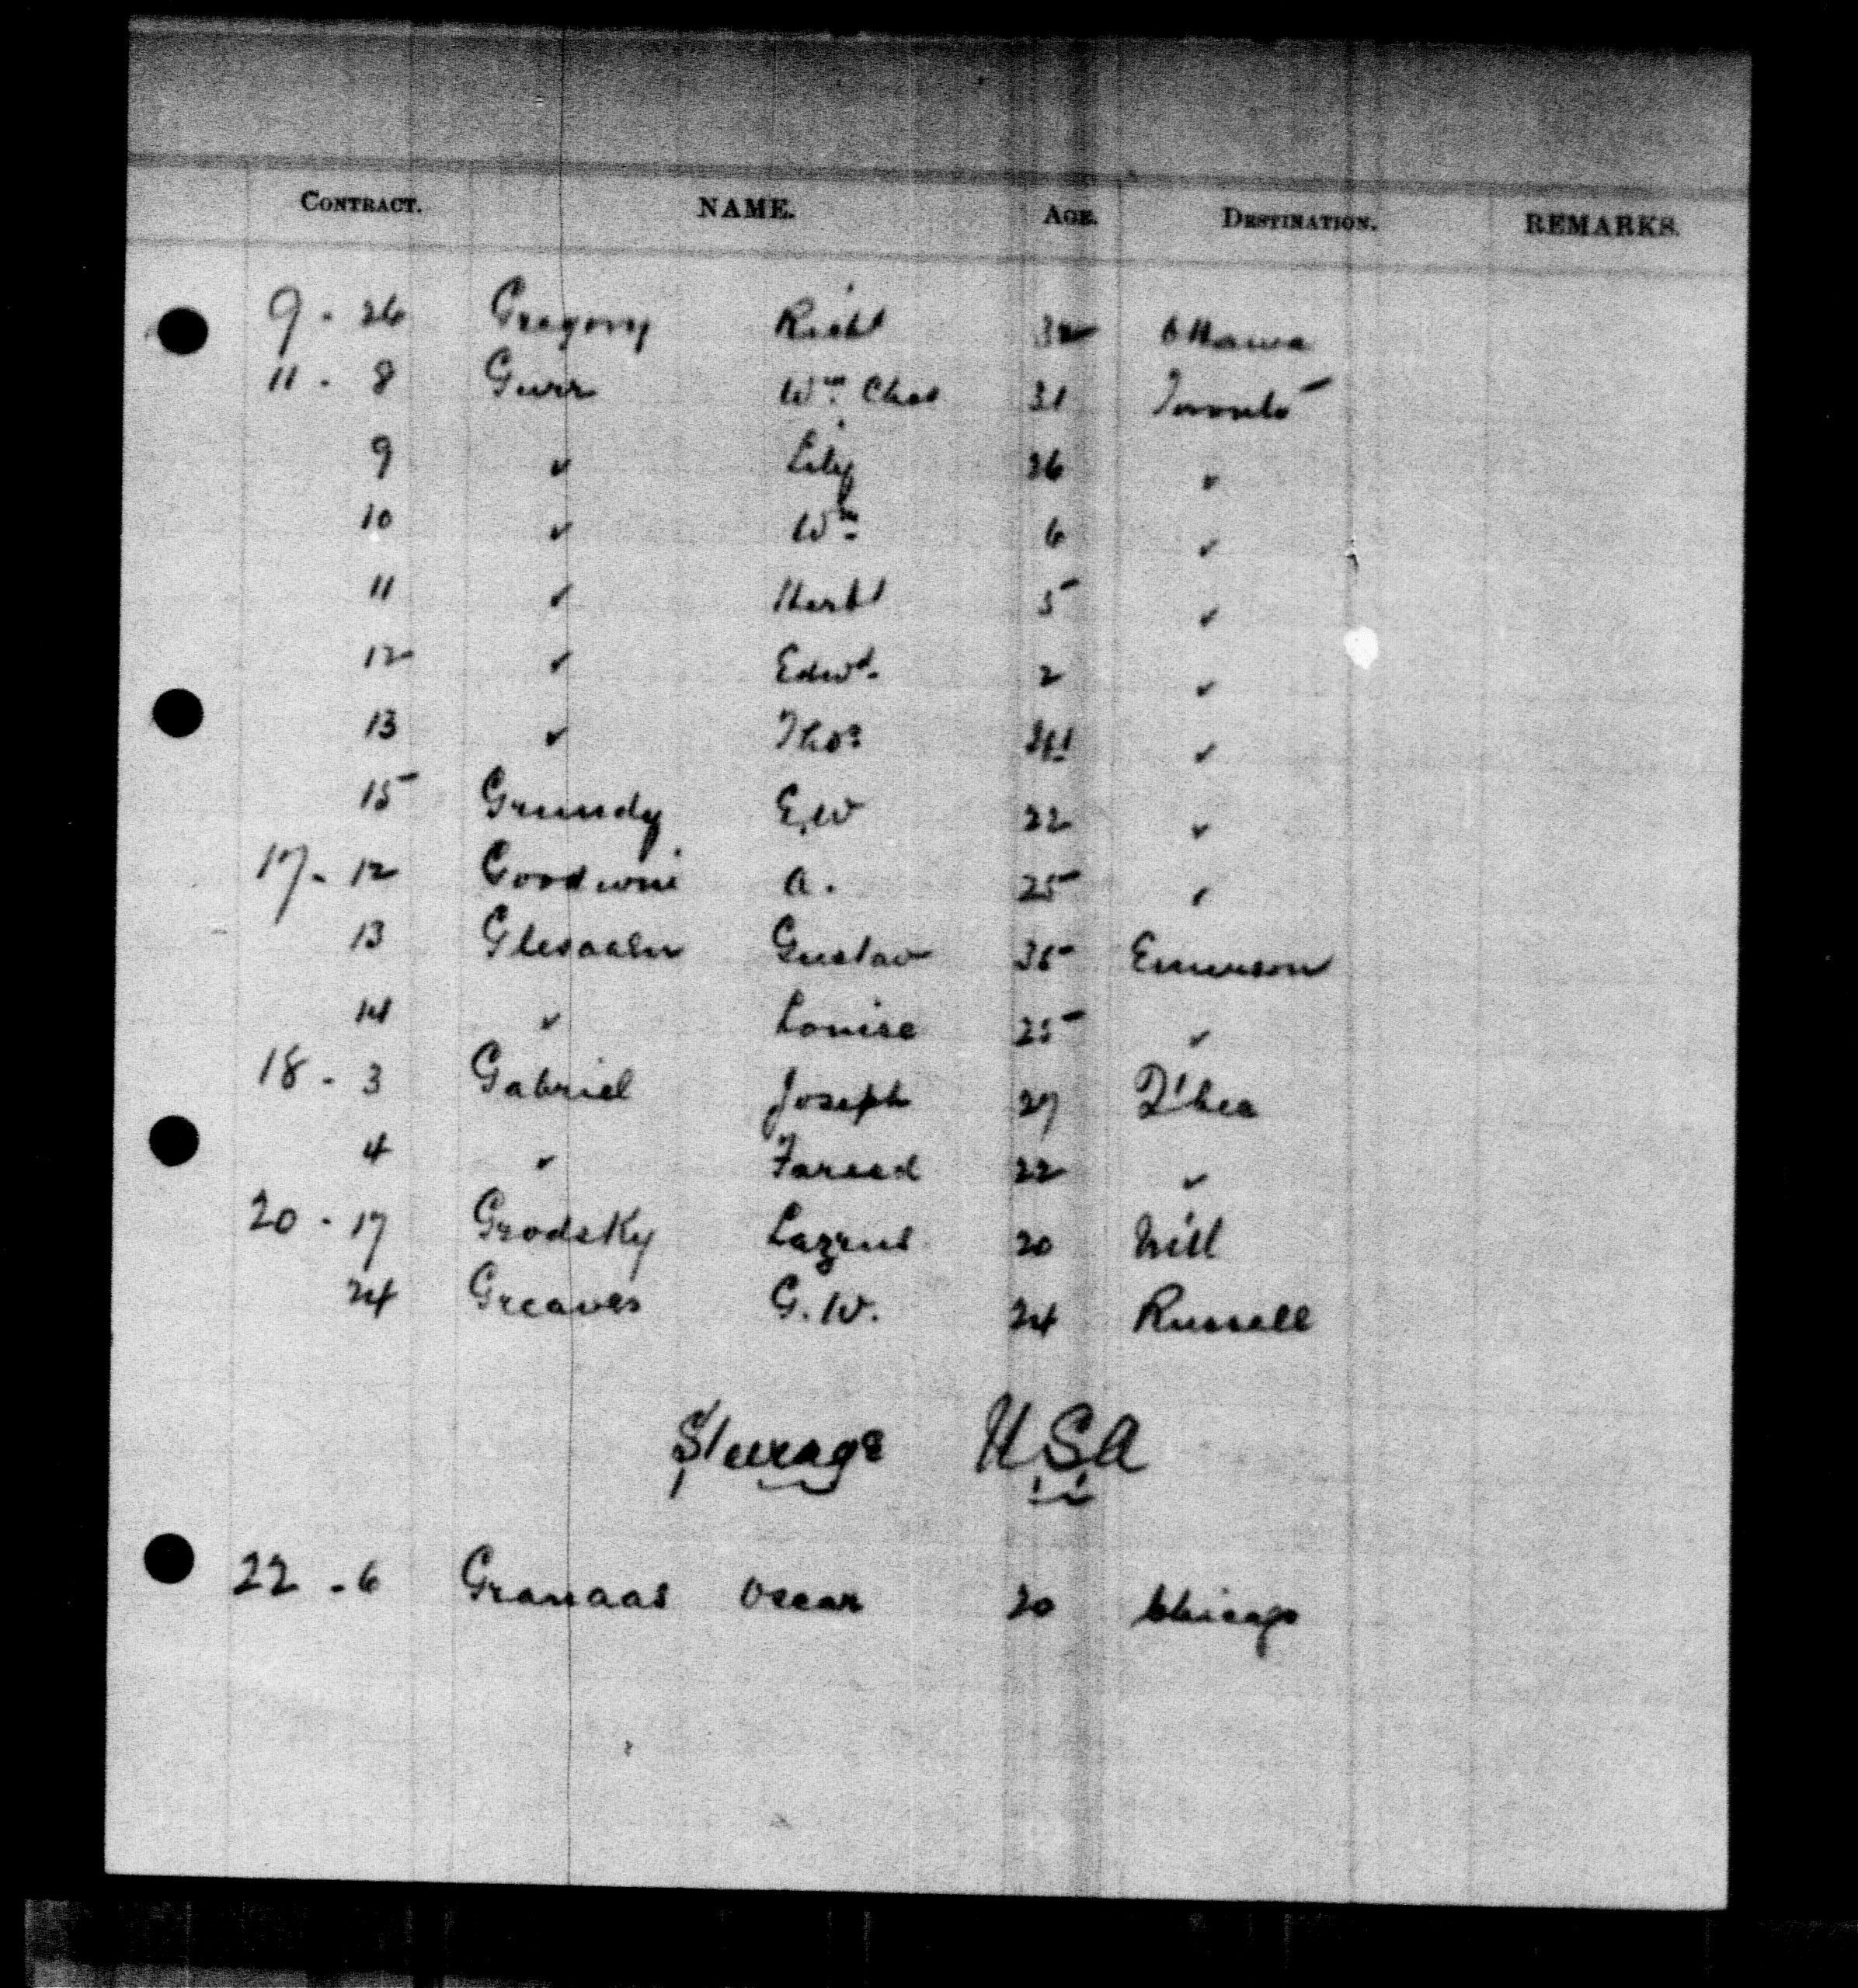 CONTRACT. NAME. AGE. DESTINATION. REMARKS.
9 - 26 Gregory Richd 32 Ottawa
11 - 8 Gurr Wm. Chas 31 Toronto
9 " Lily 26 "
10 " Wm. 6 "
11 " Herbt 5 "
12 " Edwd. 2 "
13 " Thos "
15 Grundy E.W 22 "
17 - 12 Goodwin A. 25 "
13 Gustav 35 Emerson
14 " Louise 25 "
18 - 3 Gabriel Joseph 27
4 " Fareed 22 "
20 - 17 Grodsky Lazrus 20
24 Greaves G.W. 24 Russell
Steerage USA
22 - 6 Granaas Oscar 20 Chicago